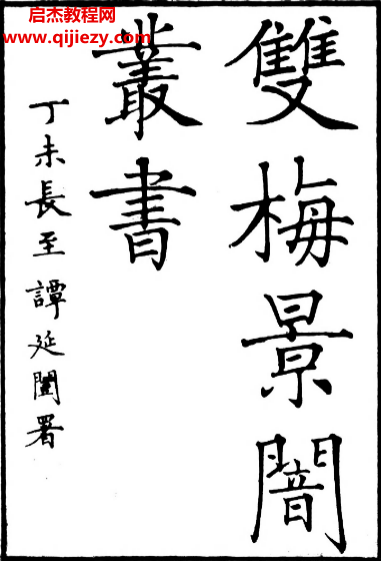 启杰教程网
www.qijiezy.com
雙梅景闇
叢書
丁未長至譚延闓署